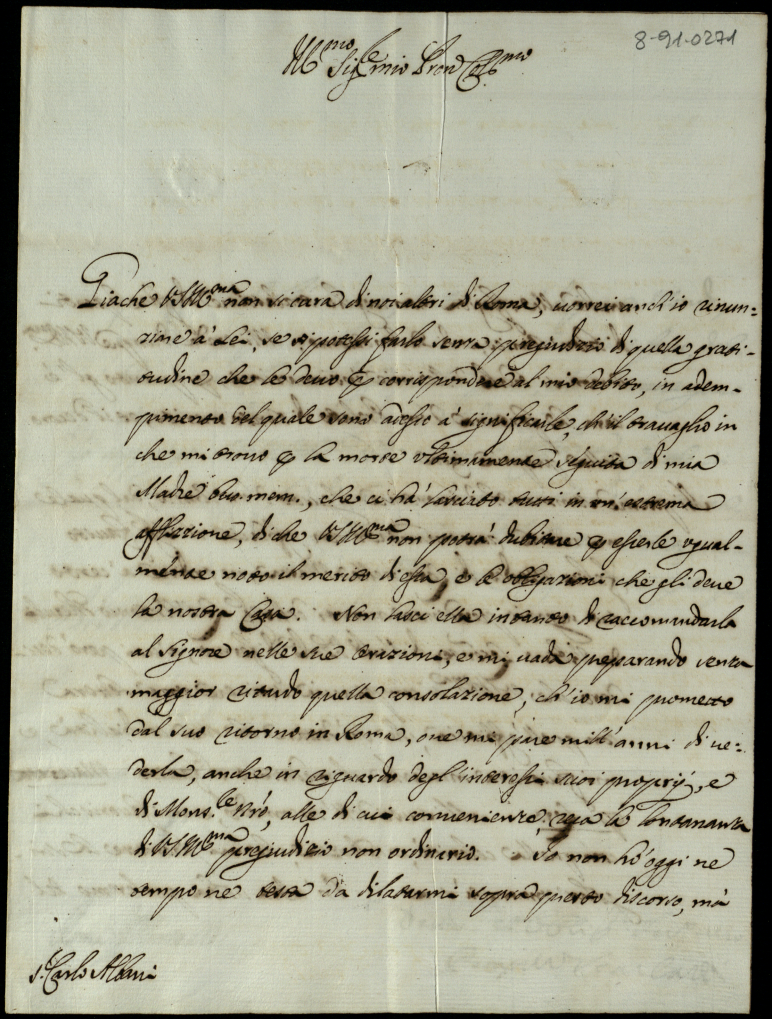 8-91-0271
Ill.mo Sig.re mio Pron Col.mo
Giache VSIll.ma non si cura di noi altri di Roma, vorrei anch'io rinun-
ziare à Lei, se potessi farlo senza pregiudizio di quella grati-
tudine che le devo p corrispondere al mio debito, in adem-
pimento del quale sono adesso à significarle, ch'il travaglio in
che mi trovo p la morte ultimamente seguita di mia
Madre buo. mem., che ci hà lasciato tutti in un'estrema
afflizione, di che VSIll.ma non potrà dubitare p esserle ugual-
mente noto il merito di essa, e le obligazioni che gli deve
la nostra Casa. Non lasci ella intanto di raccomandarla
al Signore nelle sue orazioni, e mi vada preparando senza
maggior ritardo quella consolazione, ch'io mi prometto
dal suo ritorno in Roma, ove mi pare mill'anni di ve-
derla, anche in riguardo degl'interessi suoi proprij, e
di Mons.re Nro, alle di cui convenienze reca la lontananza
di VSIll.ma pregiudizio non ordinario. Io non hò oggi ne
tempo ne testa da dilatarmi sopra questo discorso, mà
s. Carlo Albani